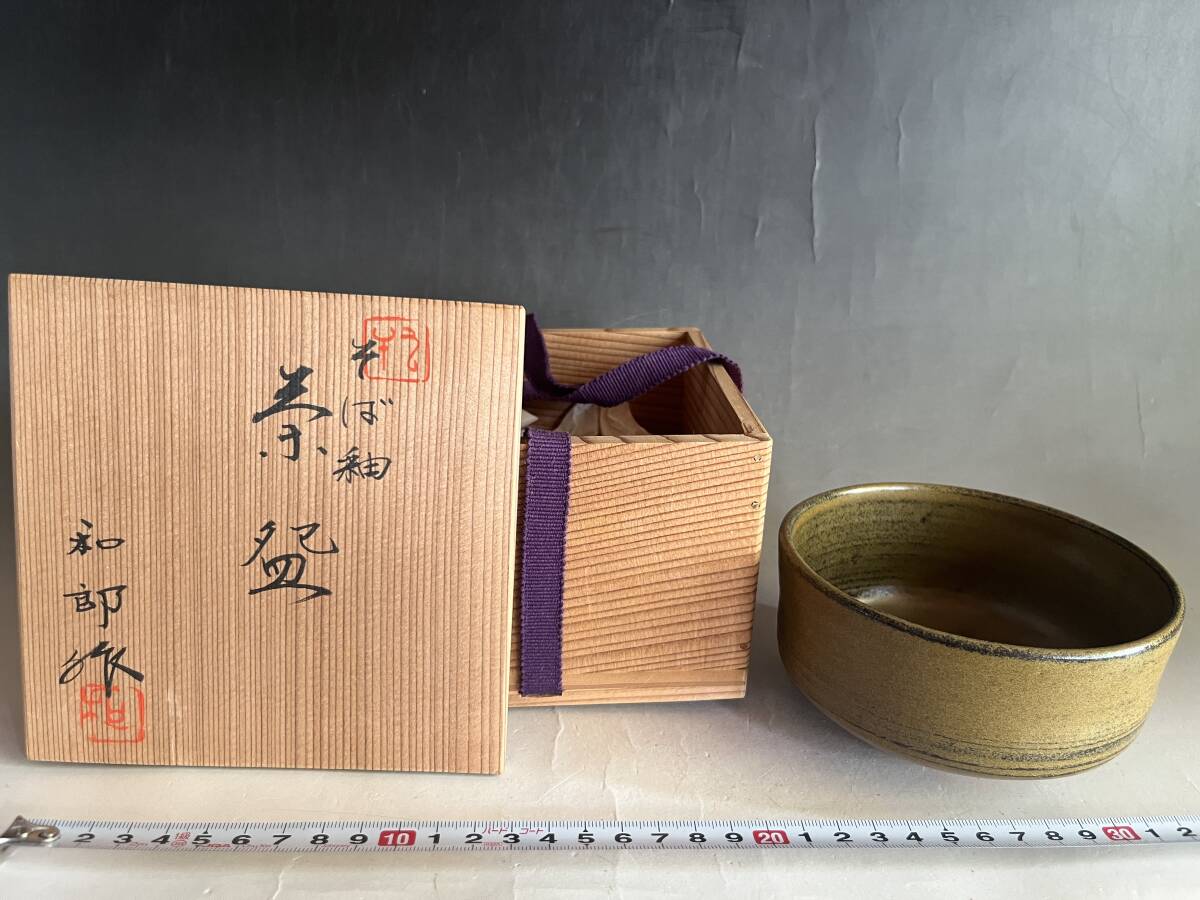 そば釉
茶盌
和郎作
2 3 4 5 6 7 8 9 10 1 2 3 4 5 6 7 8 9 20 1 2 3 4 5 6 7 8 9 30 1 2
ハードコート